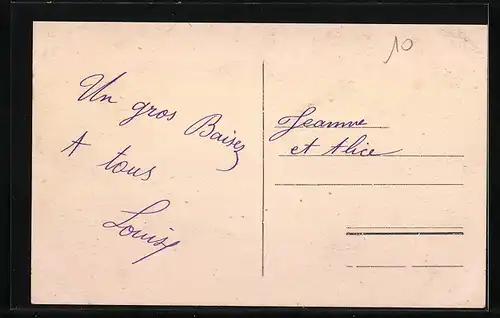 10
Un gros Baisez
A tous
Louise
Jeanne
et Alice